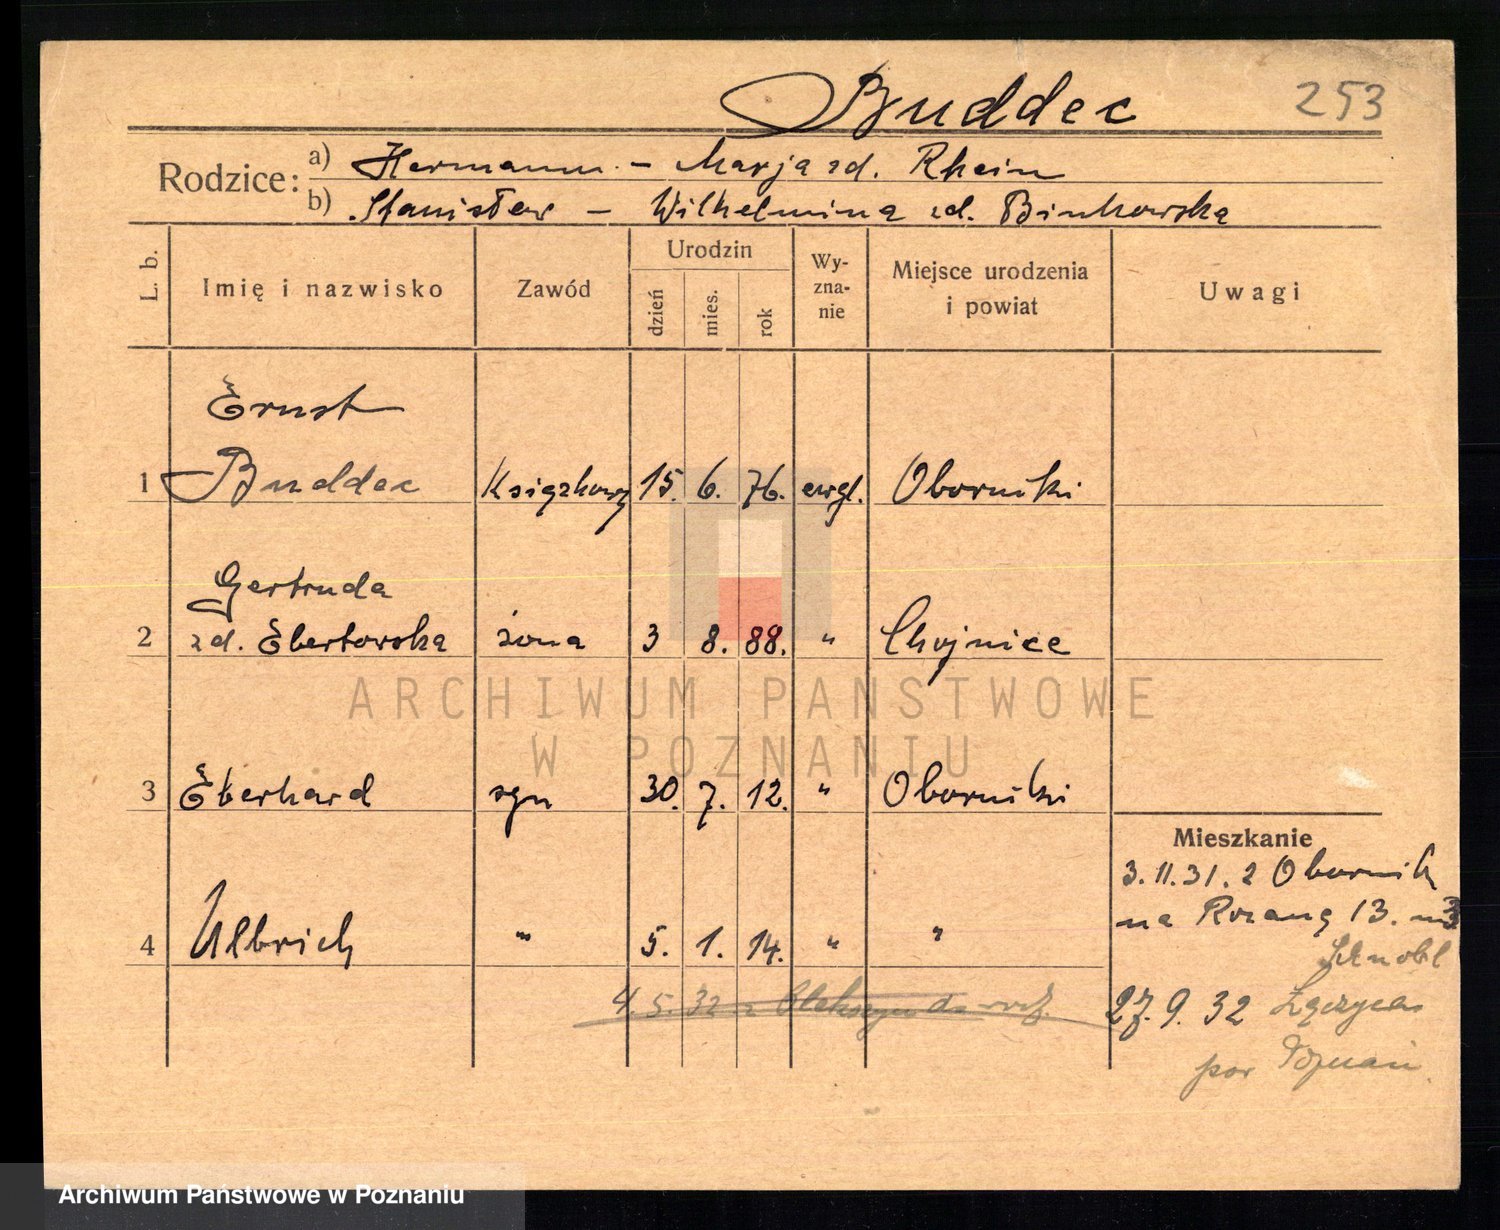 Buddee
253
Rodzice:
a) Hermann - Marja zd. Rhein
b) Stanisław - Wilhelmina zd. Binkowska
L. b.
Imię i nazwisko
Zawód
Urodzin
dzień
mies.
rok
Wy-
zna-
nie
Miejsce urodzenia
i powiat
Uwagi
Ernst
1 Buddee Książkowy 15. 6. 76. ewgl. Oborniki
Gertruda
2 zd. Ebertowska żona 3 8. 88. " Chojnice
3 Eberhard syn 30. 7. 12. " Oborniki
Mieszkanie
3.11.31. z Obornik
na Rożaną 13. m 3
4 Ulbrich " 5. 1. 14. " "
4. 5. 32 z
27. 9. 32
pow Poznań
ARCHIWUM PAŃSTWOWE
W POZNANIU
Archiwum Państwowe w Poznaniu